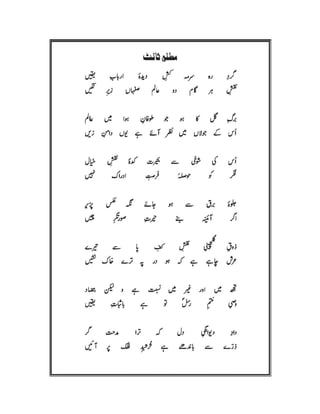 مطلعِ ثالث
گردِ رہ سرمہ کشِ دیدۂ اربابِ یقیں
نقشِ ہر گام دو عالم صفہاں زیرِ نگیں
برگِ گل کا ہو جو طوفانِ ہوا میں عالم
اُس کے جولاں میں نظر آئے ہے یوں دامنِ زیں
اُس کی شوخی سے بہ حیرت کدۂ نقشِ خیال
فکر کو حوصلۂ فرصتِ ادراک نہیں
جلوۂ برق سے ہو جائے نگہ عکس پذیر
اگر آئینہ بنے حیرتِ صورت گرِ چیں
ذوقِ گلچینیِ نقشِ کفِ پا سے تیرے
عرش چاہے ہے کہ ہو در پہ ترے خاک نشیں
تجھ میں اور غیر میں نسبت ہے و لیکن بتضاد
وصیِ ختمِ رسل تو ہے باثباتِ یقیں
دادِ دیوانگیِ دل کہ ترا مدحت گر
ذرّے سے باندھے ہے خُرشیدِ فلک پر آئیں